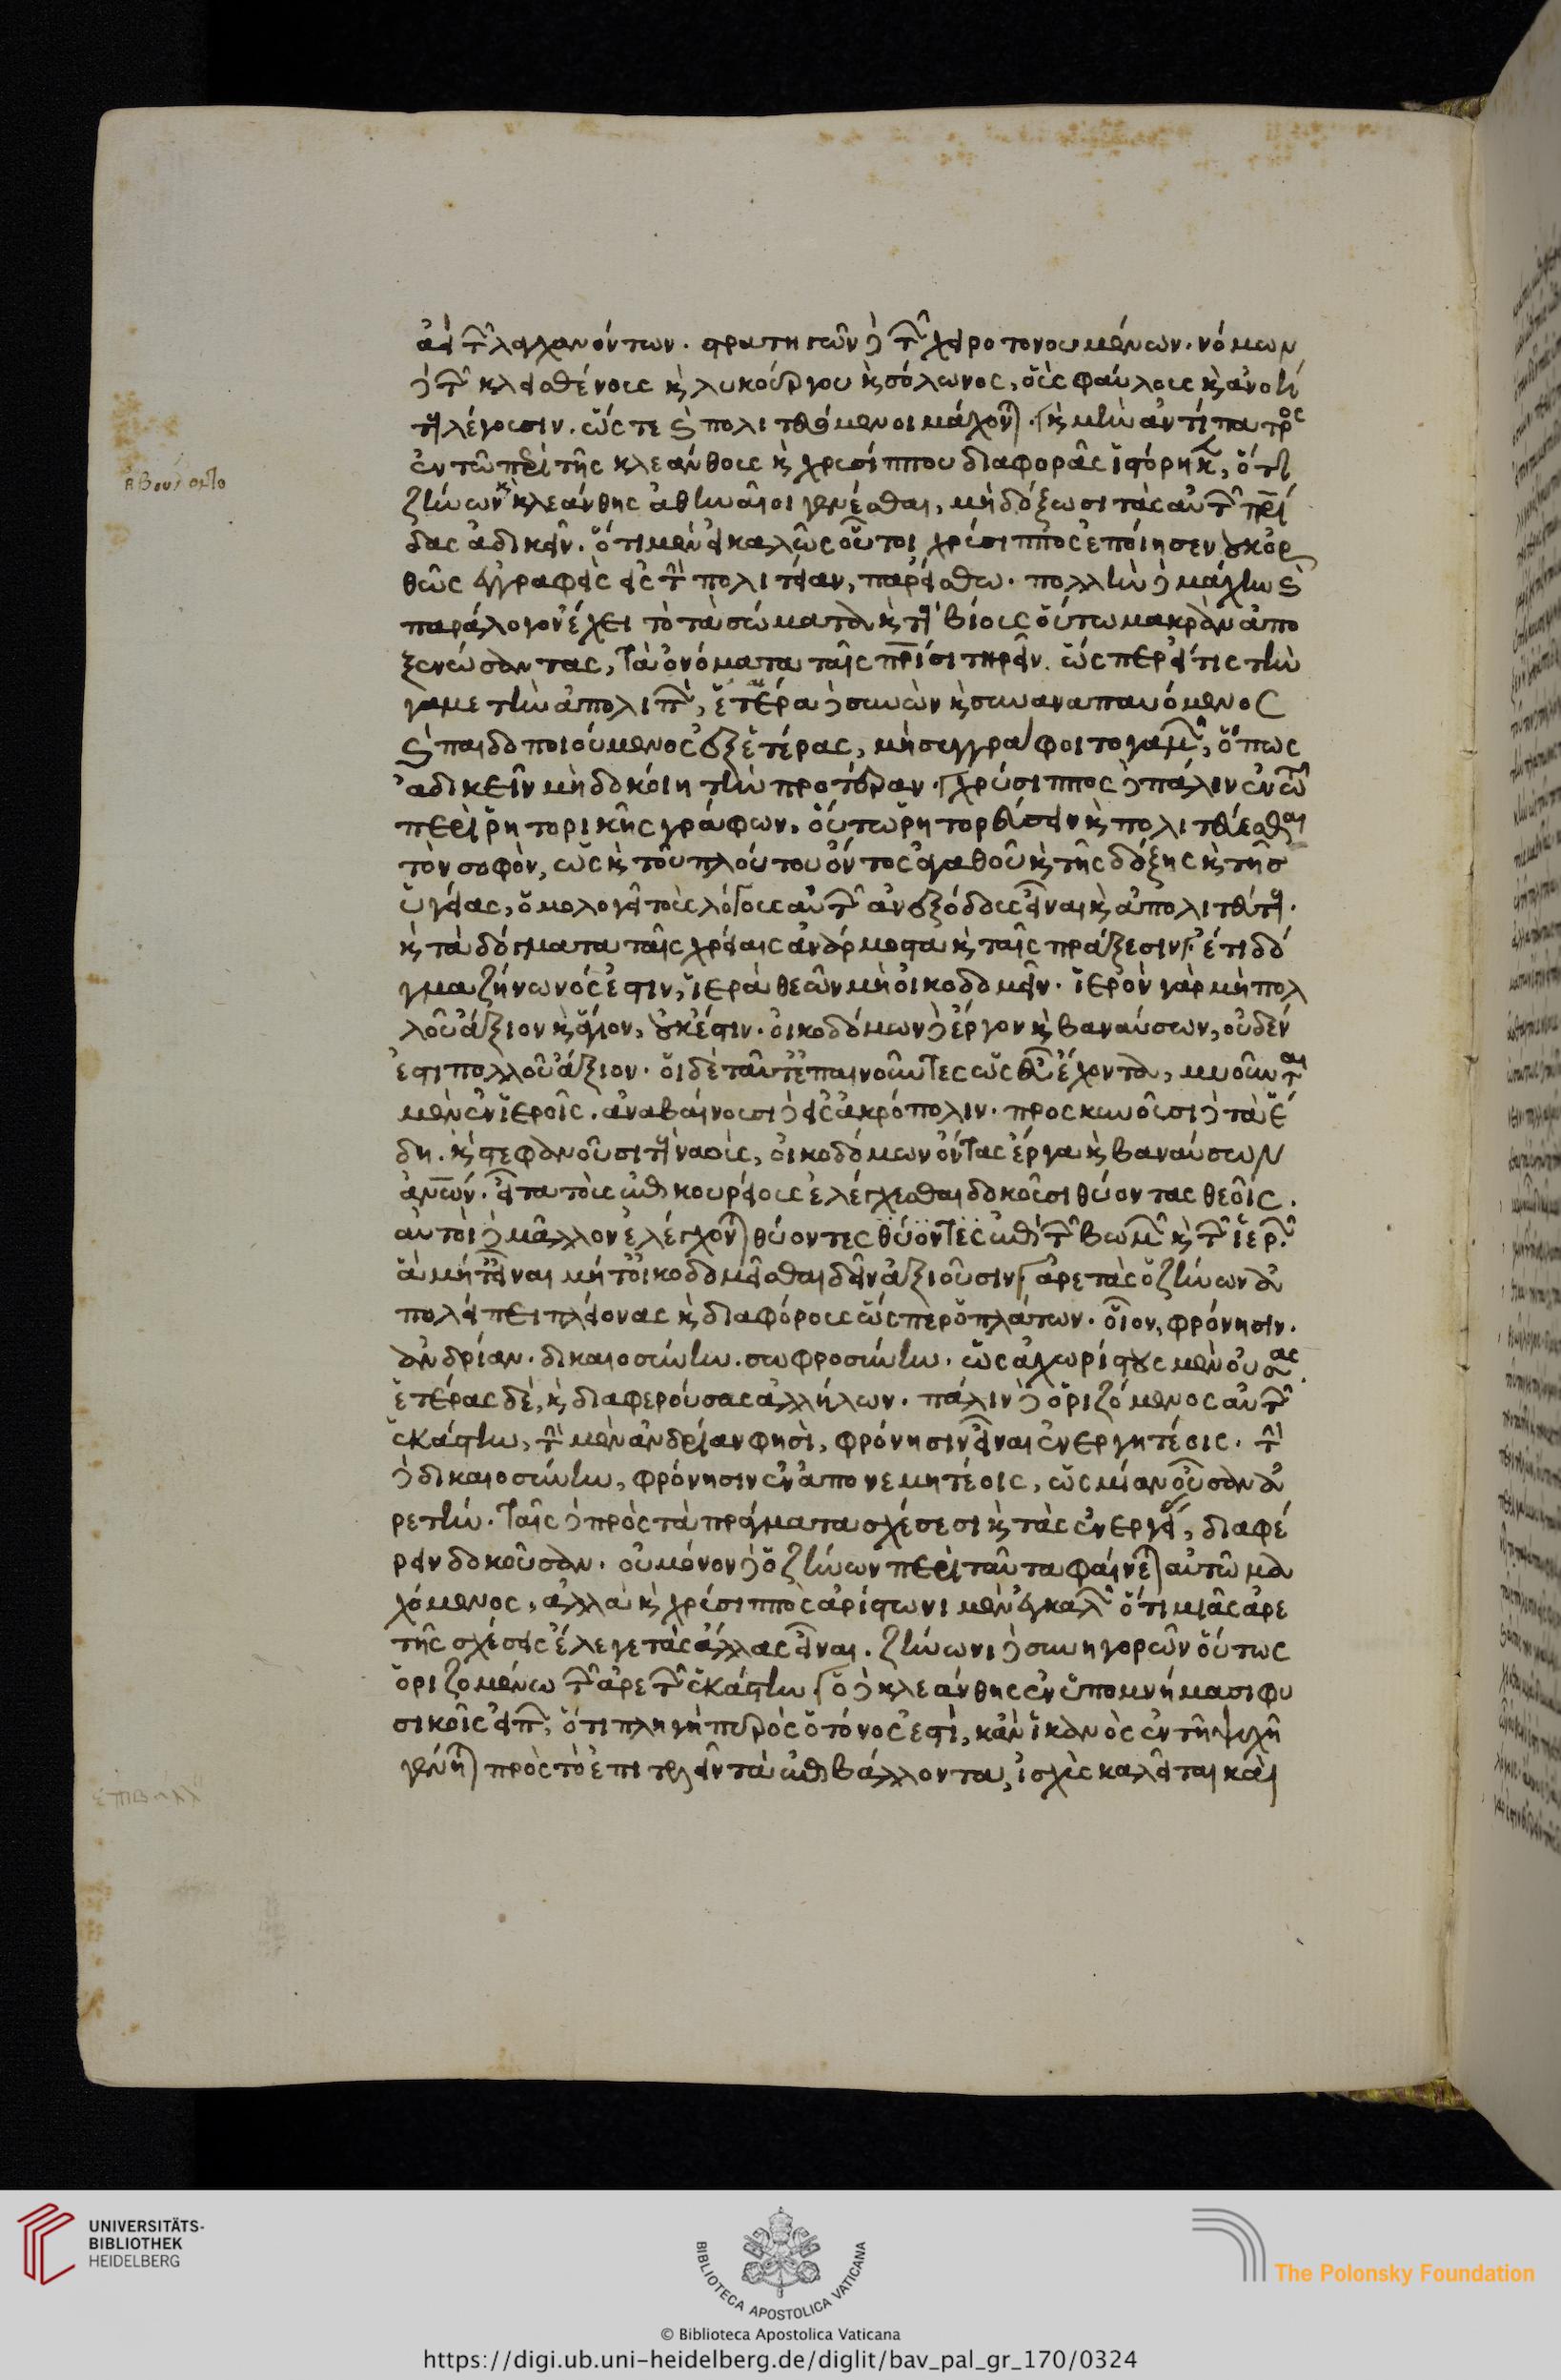 ἀεὶ τῶν λαγχανόντων. στρατηγῶν δὲ τῶν χειροτονουμένων. νόμων
δὲ τῶν κλεισθένους κὶ λυκούργου κὶ σόλωνος, οὓς φαύλους κὶ ἀνοή
τους λέγουσιν. ὥς τε κὶ πολιτευόμενοι μάχονται. κὶ μὴν ἀντίπατρος
ἐν τῶ περὶ τῆς κλεάνθους κὶ χρυσίππου διαφορᾶς ἱστόρηκεν, ὅτι
ζήνων κὶ κλεάνθης ἀθηναῖοι γενέσθαι, μὴ δόξωσι τὰς αὑτῶν πατρί
δας ἀδικεῖν. ὅτι μὲν εἰ καλῶς οὗτοι χρύσιππος ἐποίησεν οὐκ ὀρ
θῶς ἐγγραφεὶς εἰς τὴν πολιτείαν, παρείσθω. πολλὴν δὲ μάχην κὶ
παράλογον ἔχει τὸ τὰ σώματα κὶ τοὺς βίους οὕτω μακρὰν ἀπο
ξενώσαντας, τὰ ὀνόματα ταῖς πατρίσι τηρεῖν. ὥς περ εἴ τις τὴν
γαμετὴν ἀπολιπὼν, ἑτέρα δὲ συνὼν κὶ συναναπαυόμενος
κὶ παιδοποιούμενος ἐξ ἑτέρας, μὴ συγγράφοιτο γάμον, ὅπως
ἀδικεῖν μὴ δοκοίη τὴν προτέραν. χρύσιππος δὲ πάλιν ἐν τῶ
περὶ ῥητορικῆς γράφων, οὕτω ῥητορεύσειν κὶ πολιτεύεσθαι
τὸν σοφὸν, ὡς κὶ τοῦ πλούτου ὄντος ἀγαθοῦ κὶ τῆς δόξης κὶ τῆς
ὑγείας, ὁμολογεῖ τοὺς λόγους αὐτῶν ἀνεξόδους εἶναι κὶ ἀπολιτεύτους.
κὶ τὰ δόγματα ταῖς χρείαις ἀνάρμοστα κὶ ταῖς πράξεσιν. ἔτι δό
γμα ζήνωνός ἐστιν, ἱερὰ θεῶν μὴ οἰκοδομεῖν. ἱερὸν γὰρ μὴ πολ
λοῦ ἄξιον κὶ ἅγιον, οὐκ ἔστιν. οἰκοδόμων δὲ ἔργον κὶ βαναύσων, οὐδέν
ἐστι πολλοῦ ἄξιον. οἱ δὲ ταῦτ' ἐπαινοῦντες ὡς εὖ ἔχοντα, μυοῦνται
μὲν ἐν ἱεροῖς. ἀναβαίνουσι δὲ εἰς ἀκρόπολιν. προσκυνοῦσι δὲ τὰ ἕ
δη. κὶ στεφανοῦσι τοὺς ναοὺς, οἰκοδόμων ὄντας ἔργα κὶ βαναύσων
ἀνθρώπων. εἶτα τοὺς ἐπικουρείους ἐλέγχεσθαι δοκοῦσι θύοντας θεοῖς.
αὐτοὶ δὲ μᾶλλον ἐλέγχονται θύοντες θύοντες ἐπὶ τῶν βωμῶν κὶ τῶν ἱερῶν.
ἃ μήτ' εἶναι μήτ' οἰκοδομεῖσθαι δεῖν ἀξιοῦσιν. ἀρετὰς ὁ ζήνων ἀ
πολείπει πλείονας κὶ διαφόρους ὥς περ ὁ πλάτων. οἷον, φρόνησιν.
ἀνδρίαν. δικαιοσύνην. σωφροσύνην. ὡς ἀχωρίστους μὲν οὔσας
ἑτέρας δὲ, κὶ διαφερούσας ἀλλήλων. πάλιν δὲ ὁριζόμενος αὐτῶν
ἑκάστην, τὴν μὲν ἀνδρίαν φησὶ, φρόνησιν εἶναι ἐν ἐργητέοις. τὴν
δὲ δικαιοσύνην, φρόνησιν ἐν ἀπονεμητέοις, ὡς μίαν οὖσαν ἀ
ρετήν. ταῖς δὲ πρὸς τὰ πράγματα σχέσεσι κὶ τὰς ἐνεργείας, διαφέ
ρειν δοκοῦσαν. οὐ μόνον δὲ ὁ ζήνων περὶ ταῦτα φαίνεται αὑτῶ μα
χόμενος, ἀλλὰ κὶ χρύσιππος ἀρίστωνι μὲν ἐγκαλῶν ὅτι μιᾶς ἀρε
τῆς σχέσεις ἔλεγε τὰς ἄλλας εἶναι. ζήνωνι δὲ συνηγορῶν οὕτως
ὁριζομένω τῶν ἀρετῶν ἑκάστην. ὁ δὲ κλεάνθης ἐν ὑπομνήμασι φυ
σικοῖς εἰπὼν, ὅτι πληγὴ πυρὸς ὁ τόνος ἐστὶ, κἂν ἱκανὸς ἐν τῆ ψυχῆ
γένηται πρὸς τὸ ἐπιτελεῖν τὰ ἐπιβάλλοντα, ἰσχὺς καλεῖται καὶ
ἐβούλοντο
ἐπιβαλλ
UNIVERSITÄTS-
BIBLIOTHEK
HEIDELBERG
BIBLIOTECA APOSTOLICA VATICANA
The Polonsky Foundation
© Biblioteca Apostolica Vaticana
https://digi.ub.uni-heidelberg.de/diglit/bav_pal_gr_170/0324